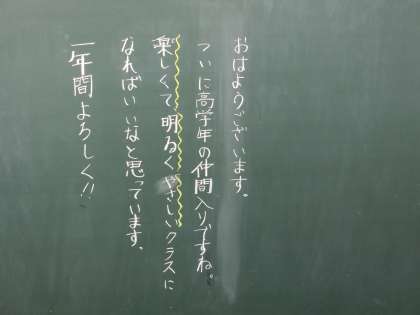 おはようございます。
ついに高学年の仲間入りですね。
楽しくて明るくやさしいクラスに
なればいいなと思っています。
一年間よろしく!!